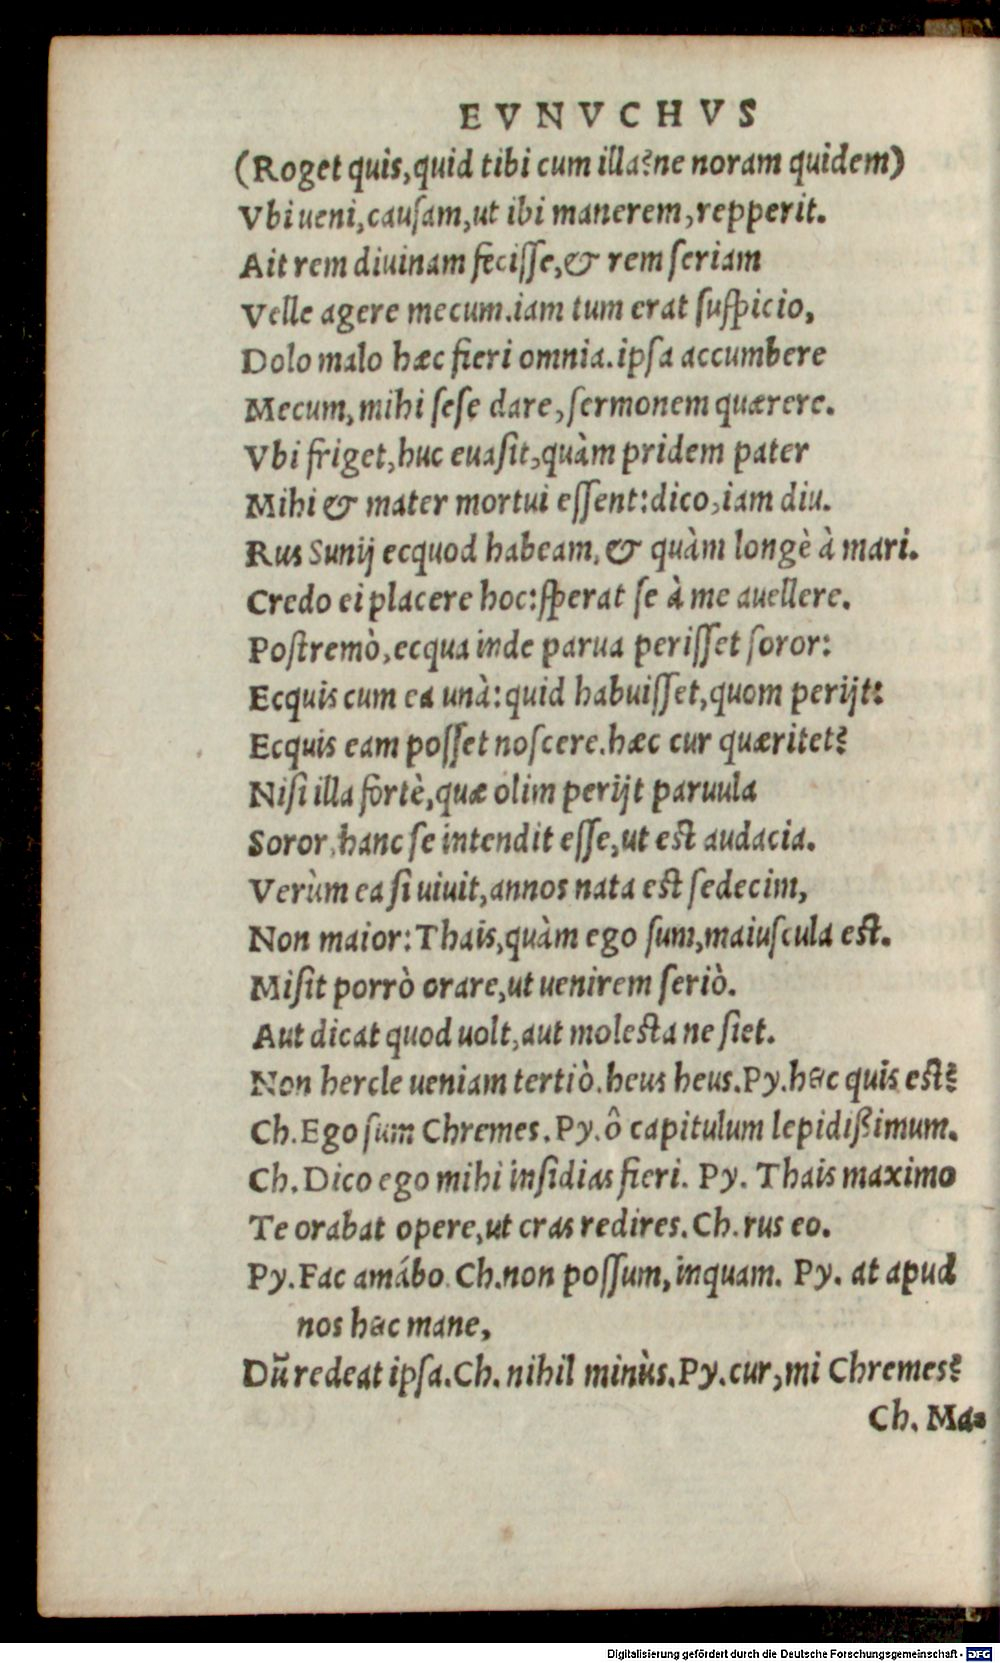 EVNVCHVS
(Roget quis, quid tibi cum illa? ne noram quidem)
Vbi ueni, causam, ut ibi manerem, repperit.
Ait rem diuinam fecisse, & rem seriam
Velle agere mecum. iam tum erat suspicio,
Dolo malo hæc fieri omnia. ipsa accumbere
Mecum, mihi sese dare, sermonem quærere.
Vbi friget, huc euasit, quàm pridem pater
Mihi & mater mortui essent: dico, iam diu.
Rus Sunij ecquod habeam, & quàm longè à mari.
Credo ei placere hoc: sperat se à me auellere.
Postremò, ecqua inde parua perisset soror:
Ecquis cum ea unà: quid habuisset, quom perijt:
Ecquis eam posset noscere. hæc cur quæritet?
Nisi illa fortè, quæ olim perijt paruula
Soror, hanc se intendit esse, ut est audacia.
Verùm ea si uiuit, annos nata est sedecim,
Non maior: Thais, quàm ego sum, maiuscula est.
Misit porrò orare, ut uenirem seriò.
Aut dicat quod uolt, aut molesta ne siet.
Non hercle ueniam tertiò. heus heus. Py. hic quis est?
Ch. Ego sum Chremes. Py. ô capitulum lepidißimum.
Ch. Dico ego mihi insidias fieri. Py. Thais maximo
Te orabat opere, ut cras redires. Ch. rus eo.
Py. Fac amábo. Ch. non possum, inquam. Py. at apud
nos hic mane,
Dũ redeat ipsa. Ch. nihil minùs. Py. cur, mi Chremes?
Ch. Ma-
Digitalisierung gefördert durch die Deutsche Forschungsgemeinschaft - DFG